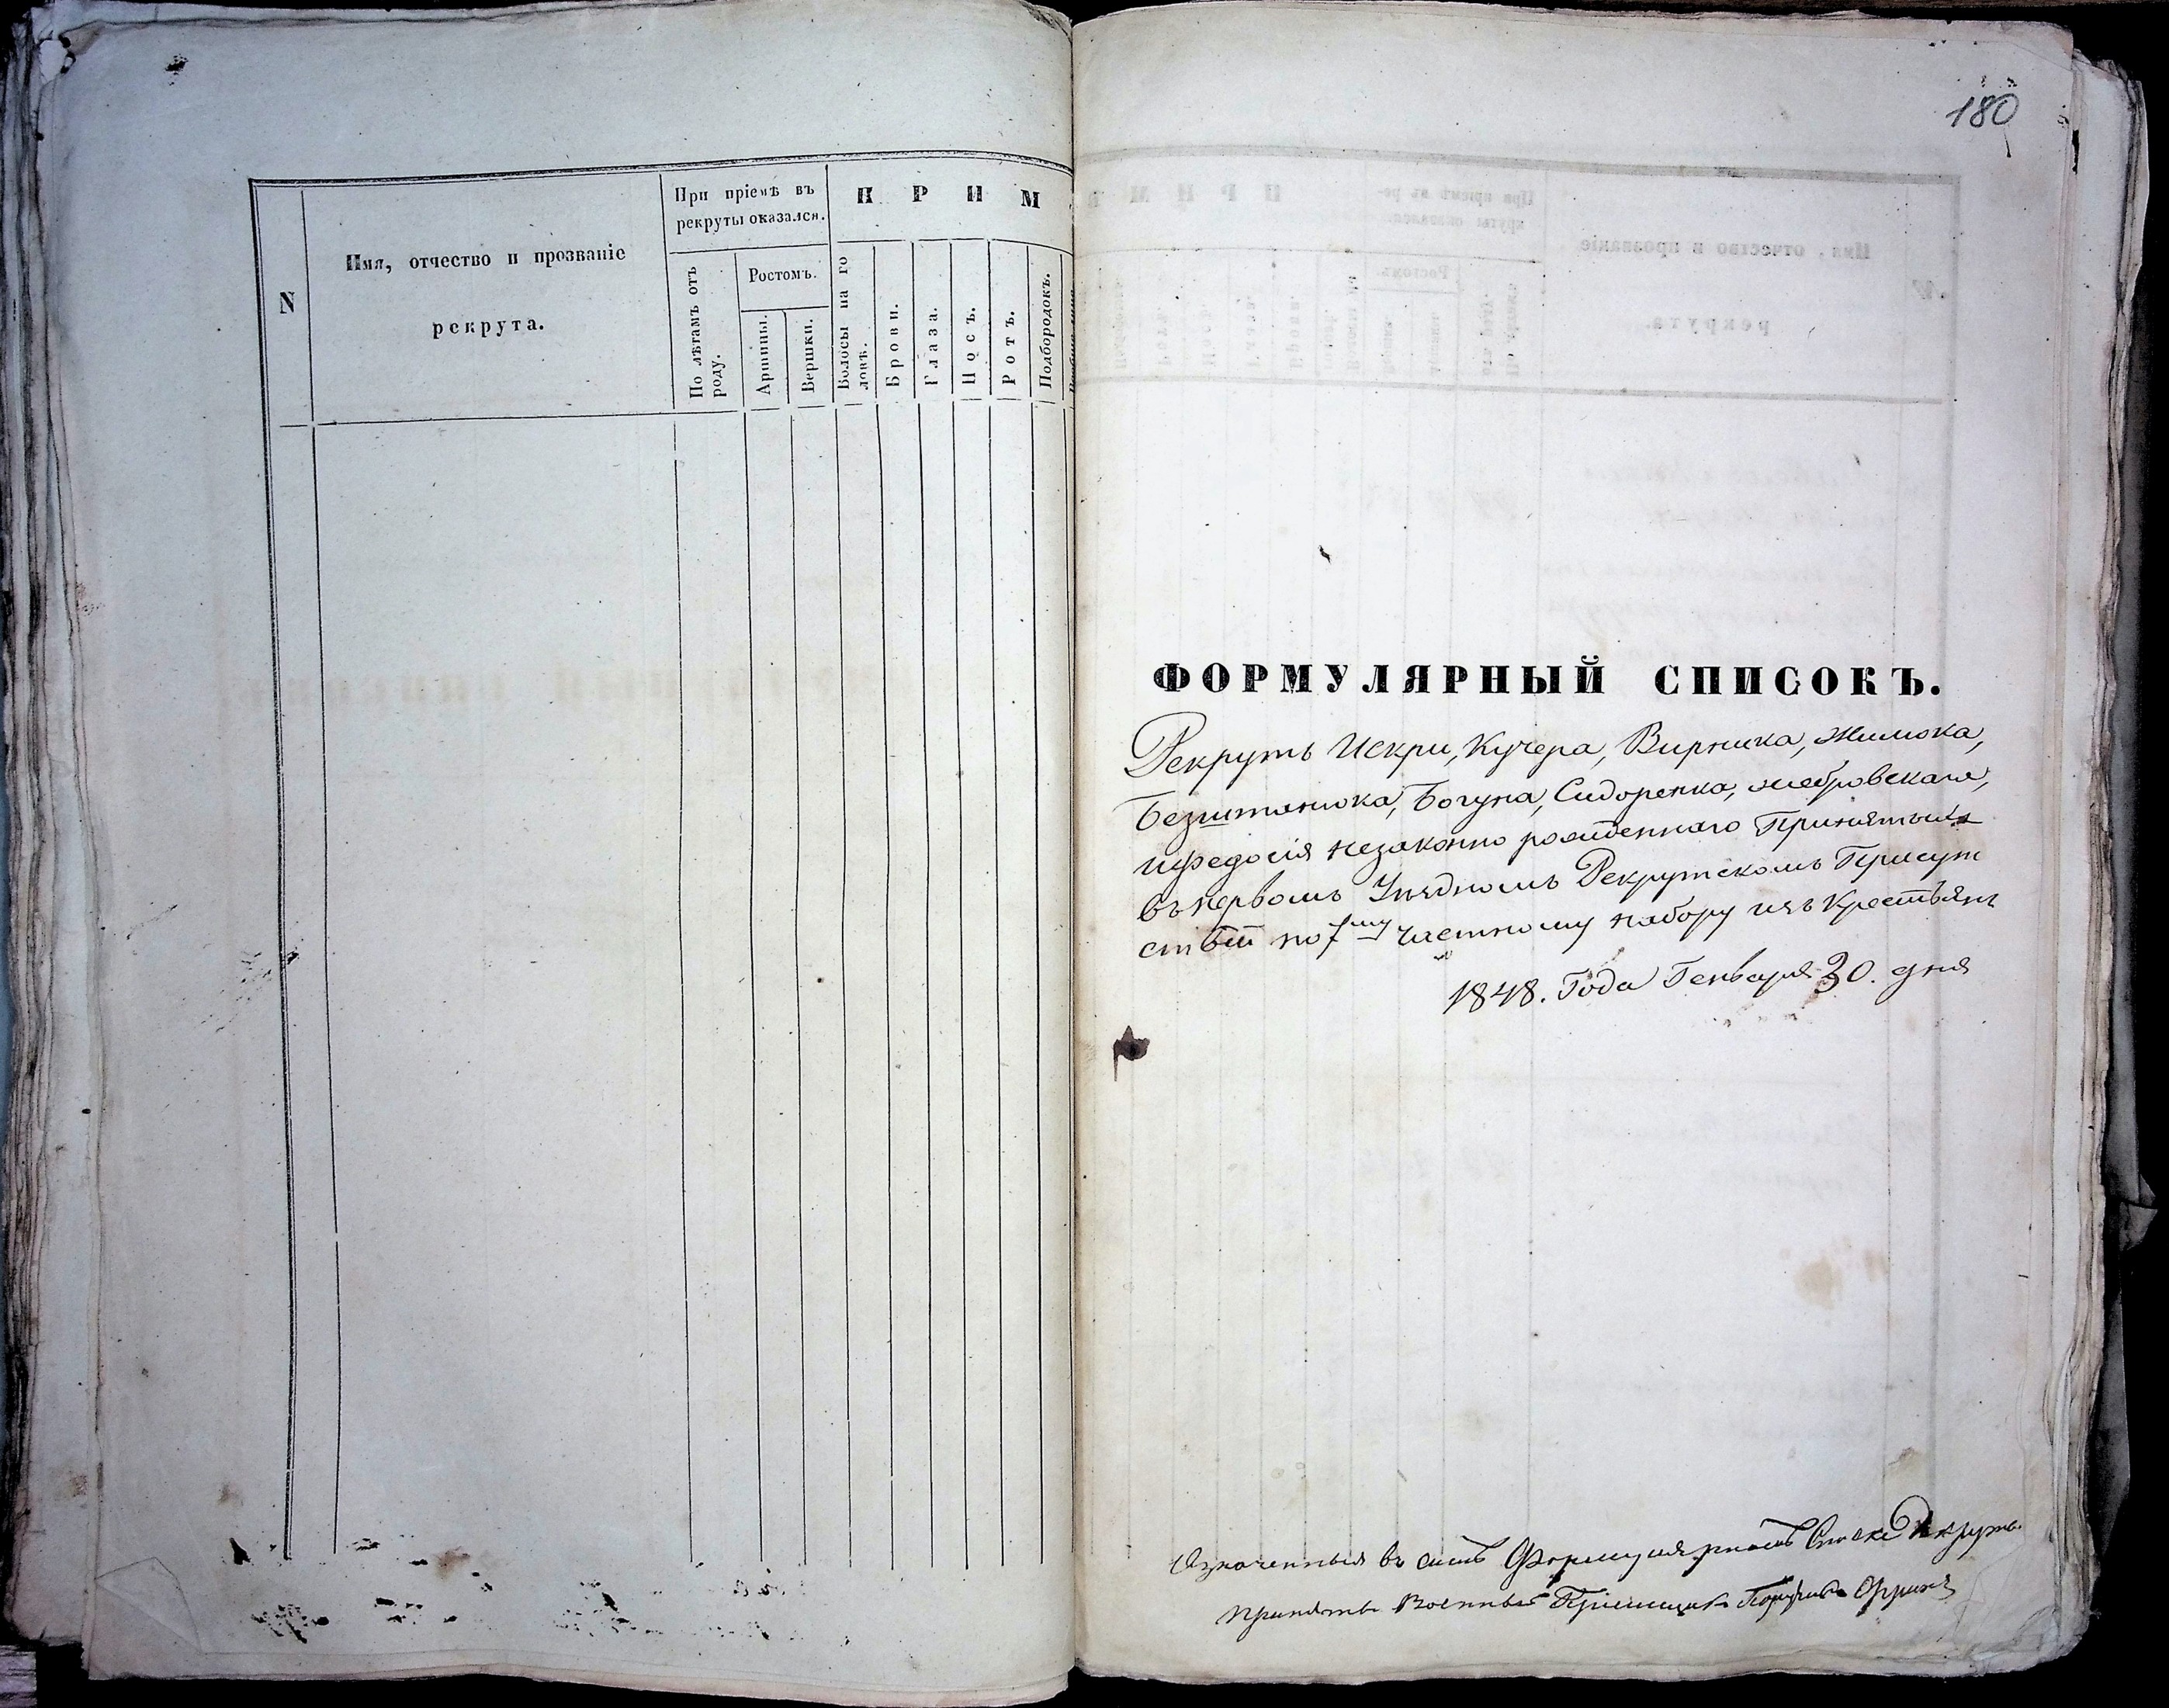 N
Имя, отчество и прозваніе
рекрута.
При пріемѣ въ
рекруты оказался.
По лѣтамъ отъ
роду.
Ростомъ.
Аршины.
Вершки.
П Р И М
Волосы на го
ловѣ.
Брови.
Глаза.
Носъ.
Ротъ.
Подбородокъ.
180
ФОРМУЛЯРНЫЙ СПИСОКЪ.
Рекрутъ Искри, Кучера, Вирника,
Безштанька, Богуна, Сидоренка, Жебровскаго,
иѳедосія незаконно рожденнаго Принятыхъ
въ первомъ Уѣздномъ Рекрутскомъ Присут
ствіи по 7му частному набору изъ Крестьянъ
1848. Года Генваря 30. дня
Означенныя въ семъ Формулярномъ Списке Рекрутъ
принятъ Военный Пріемщикъ Поручикъ